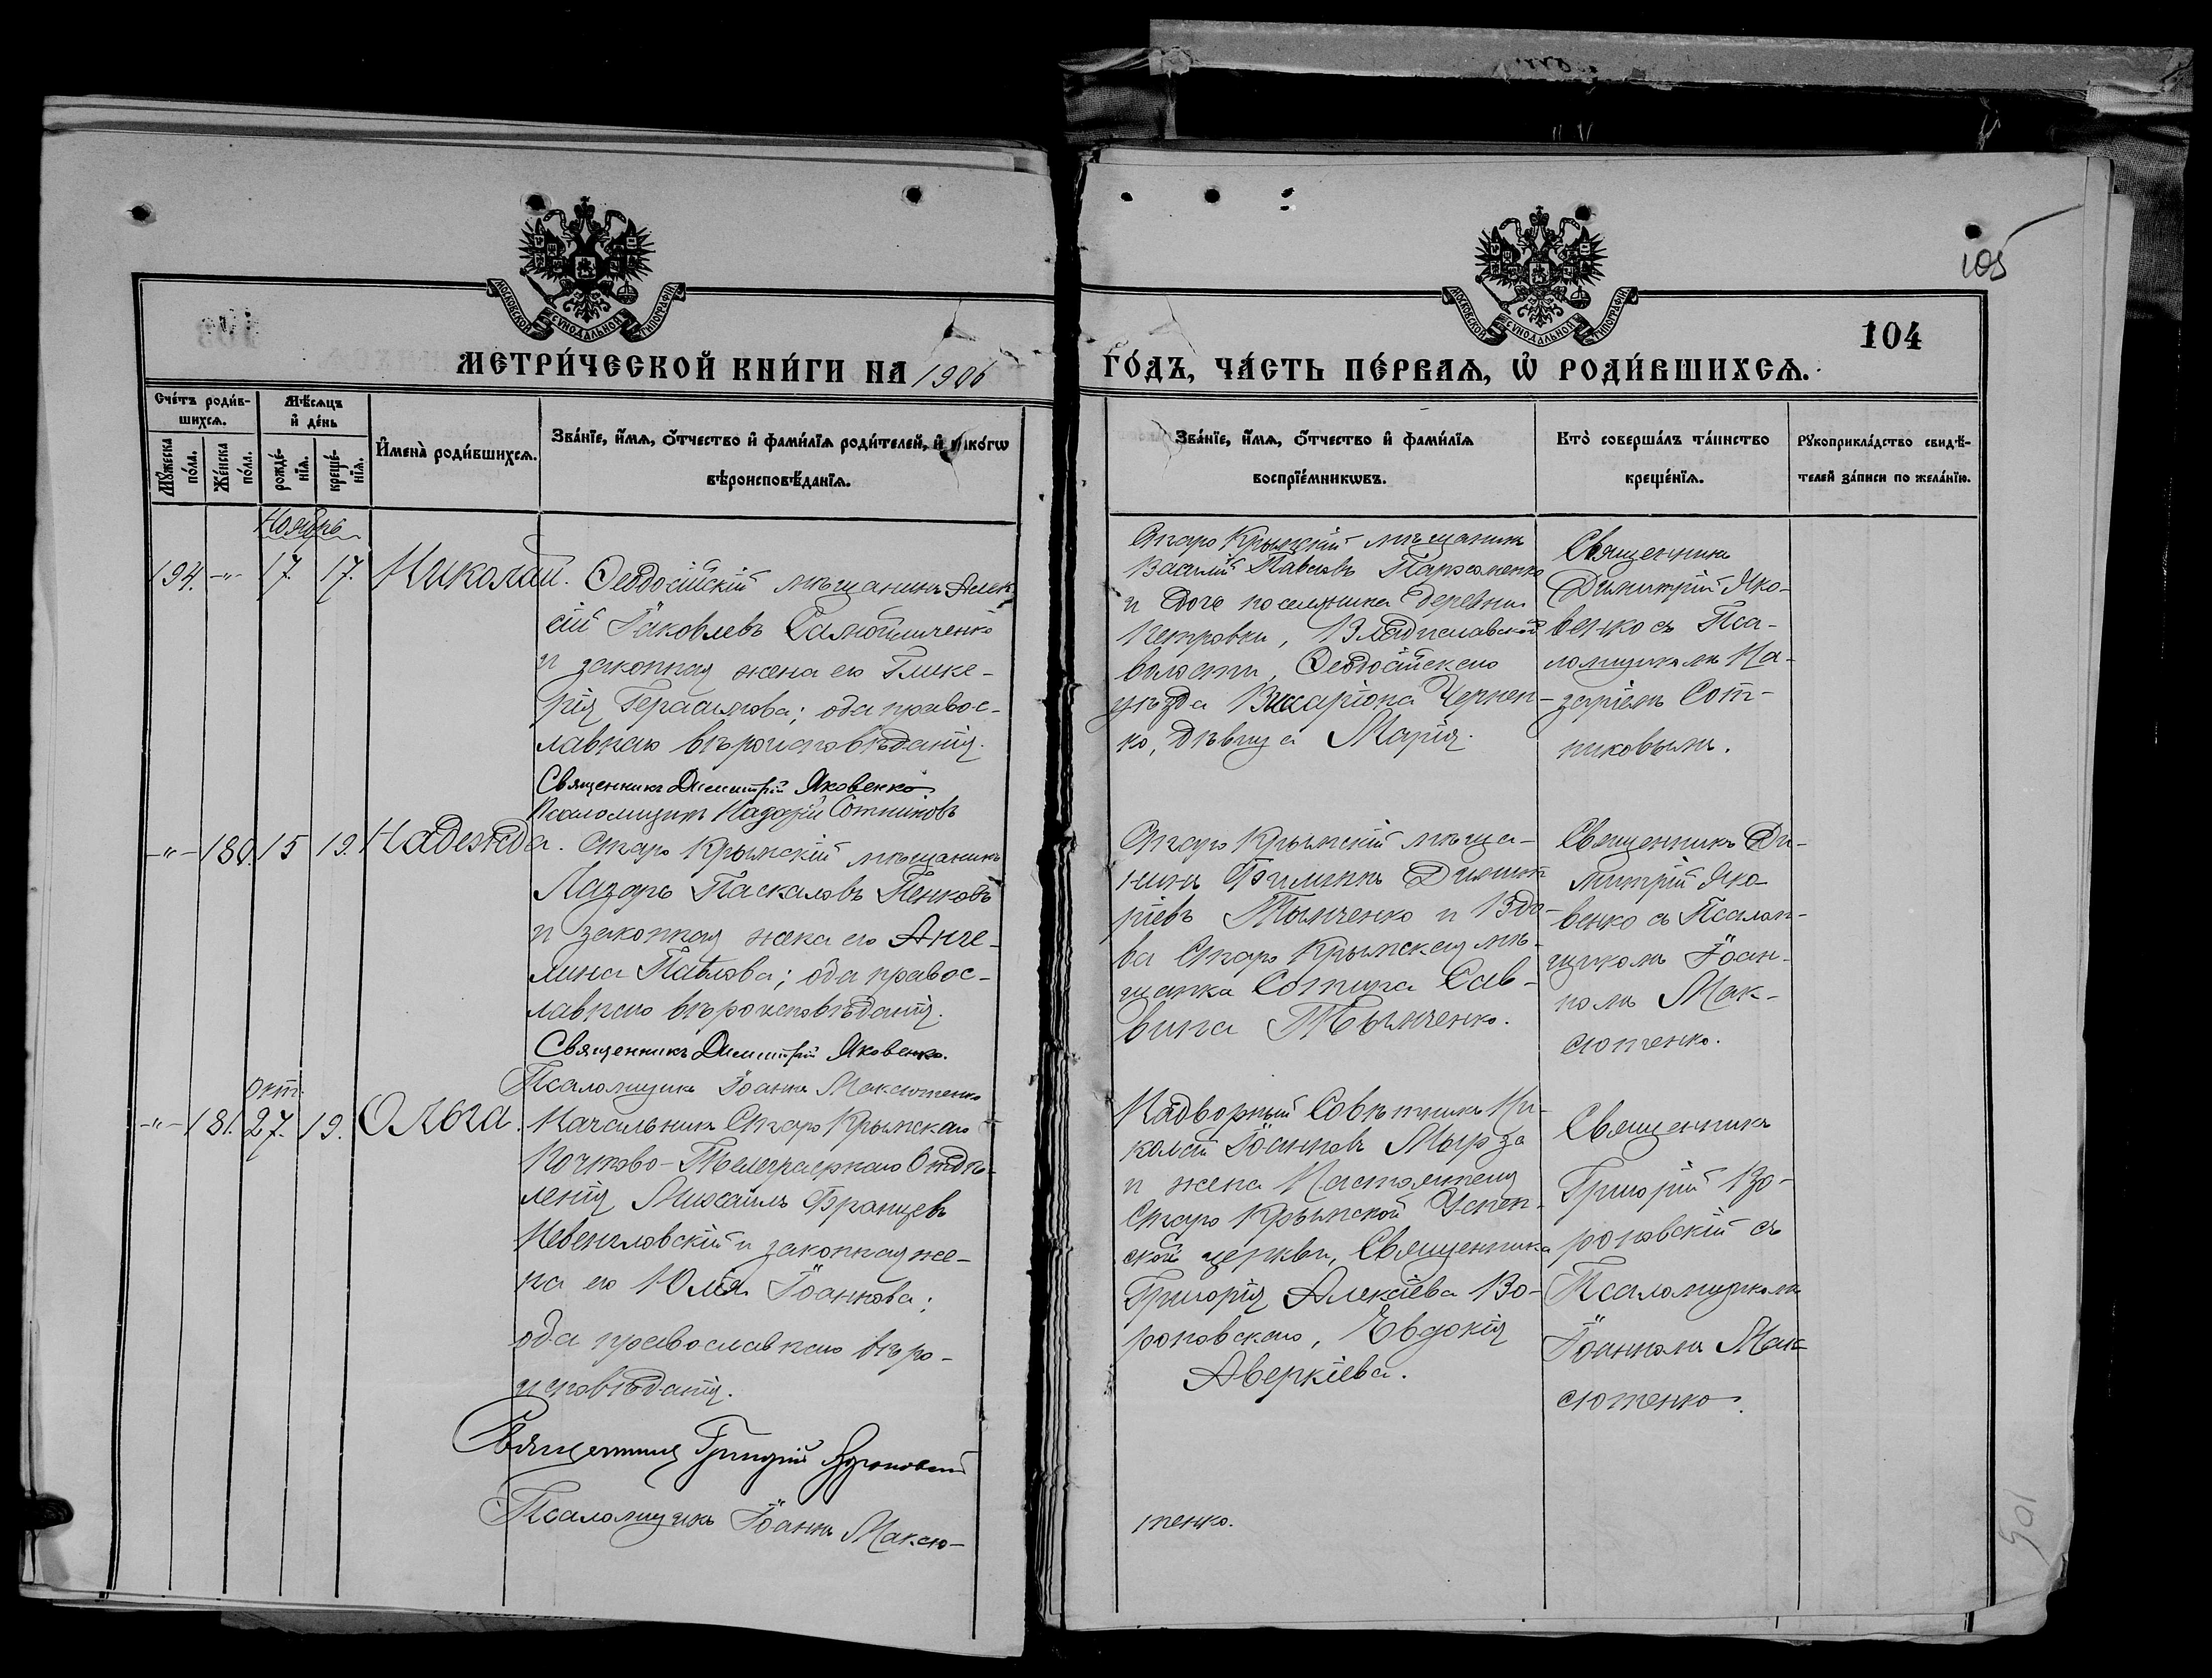 105
104
МОСКОВСКОЙ СѴНОДАЛЬНОЙ ТИПОГРАФІИ
МОСКОВСКОЙ СѴНОДАЛЬНОЙ ТИПОГРАФІИ
МЕТРИ́ЧЕСКОЙ КНИ́ГИ НА 1906
ГО́ДЪ, ЧА́СТЬ ПЕ́РВАѦ, Ѡ҆ РОДИ́ВШИХСѦ.
Сче́тъ роди́в-
шихсѧ.
Мꙋ́жеска по́ла.
Же́нска по́ла.
Мѣ́сѧцъ
и҆ де́нь
рожде́-
нїѧ.
креще́-
нїѧ.
И҆мена̀ роди́вшихсѧ.
Зва́нїе, и҆́мѧ, ѻ҆́тчество и҆ фами́лїѧ роди́телей, и҆ како́гѡ
вѣроисповѣ́данїѧ.
Зва́нїе, и҆́мѧ, ѻ҆́тчество и҆ фами́лїѧ
воспрїе́мникѡвъ.
Кто̀ соверша́лъ та́инство
креще́нїѧ.
Рꙋкоприкла́дство свидѣ́-
телей за́писи по жела́нїю.
Ноябрь
194. -"- 17. 17. Николай.
Ѳеодосійскій мѣщанинъ Алек
сій Іаковлевъ Самойличенко
и законная жена его Глике-
рія Герасимова; оба правос-
лавнаго вѣроисповѣданія.
Священникъ Димитрій Яковенко
Псаломщикъ Назарій Сотниковъ
Старо Крымскій мѣщанинъ
Василій Павловъ Пархоменко
и дочь поселянина деревни
Петровки, Владиславской
волости, Ѳеодосійскаго
уѣзда Виссаріона Чернен-
ко, дѣвица Марія.
Священникъ
Димитрій Яко-
венко съ Пса-
ломщикомъ На-
заріемъ Сот-
никовымъ.
-"- 180. 15 19. Надежда.
Старо Крымскій мѣщанинъ
Лазарь Паскаловъ Пенковъ
и законная жена его Анге-
лина Павлова; оба правос-
лавнаго вѣроисповѣданія.
Священникъ Димитрій Яковенко.
Псаломщикъ Іоаннъ Максютенко
Старо Крымскій мѣща-
нинъ Филиппъ Димит
ріевъ Тымченко и вдо-
ва Старо Крымская мѣ-
щанка Сав-
вина Тымченко.
Священникъ Ди-
митрій Яко-
венко съ Псалом-
щикомъ Іоан-
номъ Мак-
сютенко.
Окт.
-"- 181. 27. 19. Ольга.
Начальникъ Старо Крымскаго
Почтово-Телеграфнаго Отдѣ-
ленія Михаилъ Францевъ
и законная же-
на его Юлія Іоаннова;
оба православнаго вѣро-
исповѣданія.
Священникъ Григорій Вороновскій
Псаломщикъ Іоаннъ Максю-
тенко.
Надворный Совѣтникъ Ни-
колай Іоанновъ Мырза
и жена Настоятеля
Старо Крымской Успен-
ской церкви, Священника
Григорія Алексіева Во-
роновскаго, Евдокія
Аверкіева.
Священникъ
Григорій Во-
роновскій съ
Псаломщикомъ
Іоанномъ Мак-
сютенко.
105